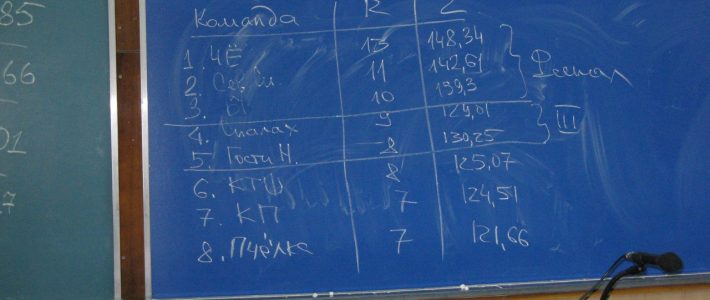 85
66
01
7
Команда R Σ
1. ЧЁ 13 148,34
2. 11 142,61
3. 10 139,3
4. Спалах 9 129,01
5. Гости Н. 8 130,25
III
6. КТФ 8 125,07
7. КП 7 124,51
8. Пчёлка 7 121,66